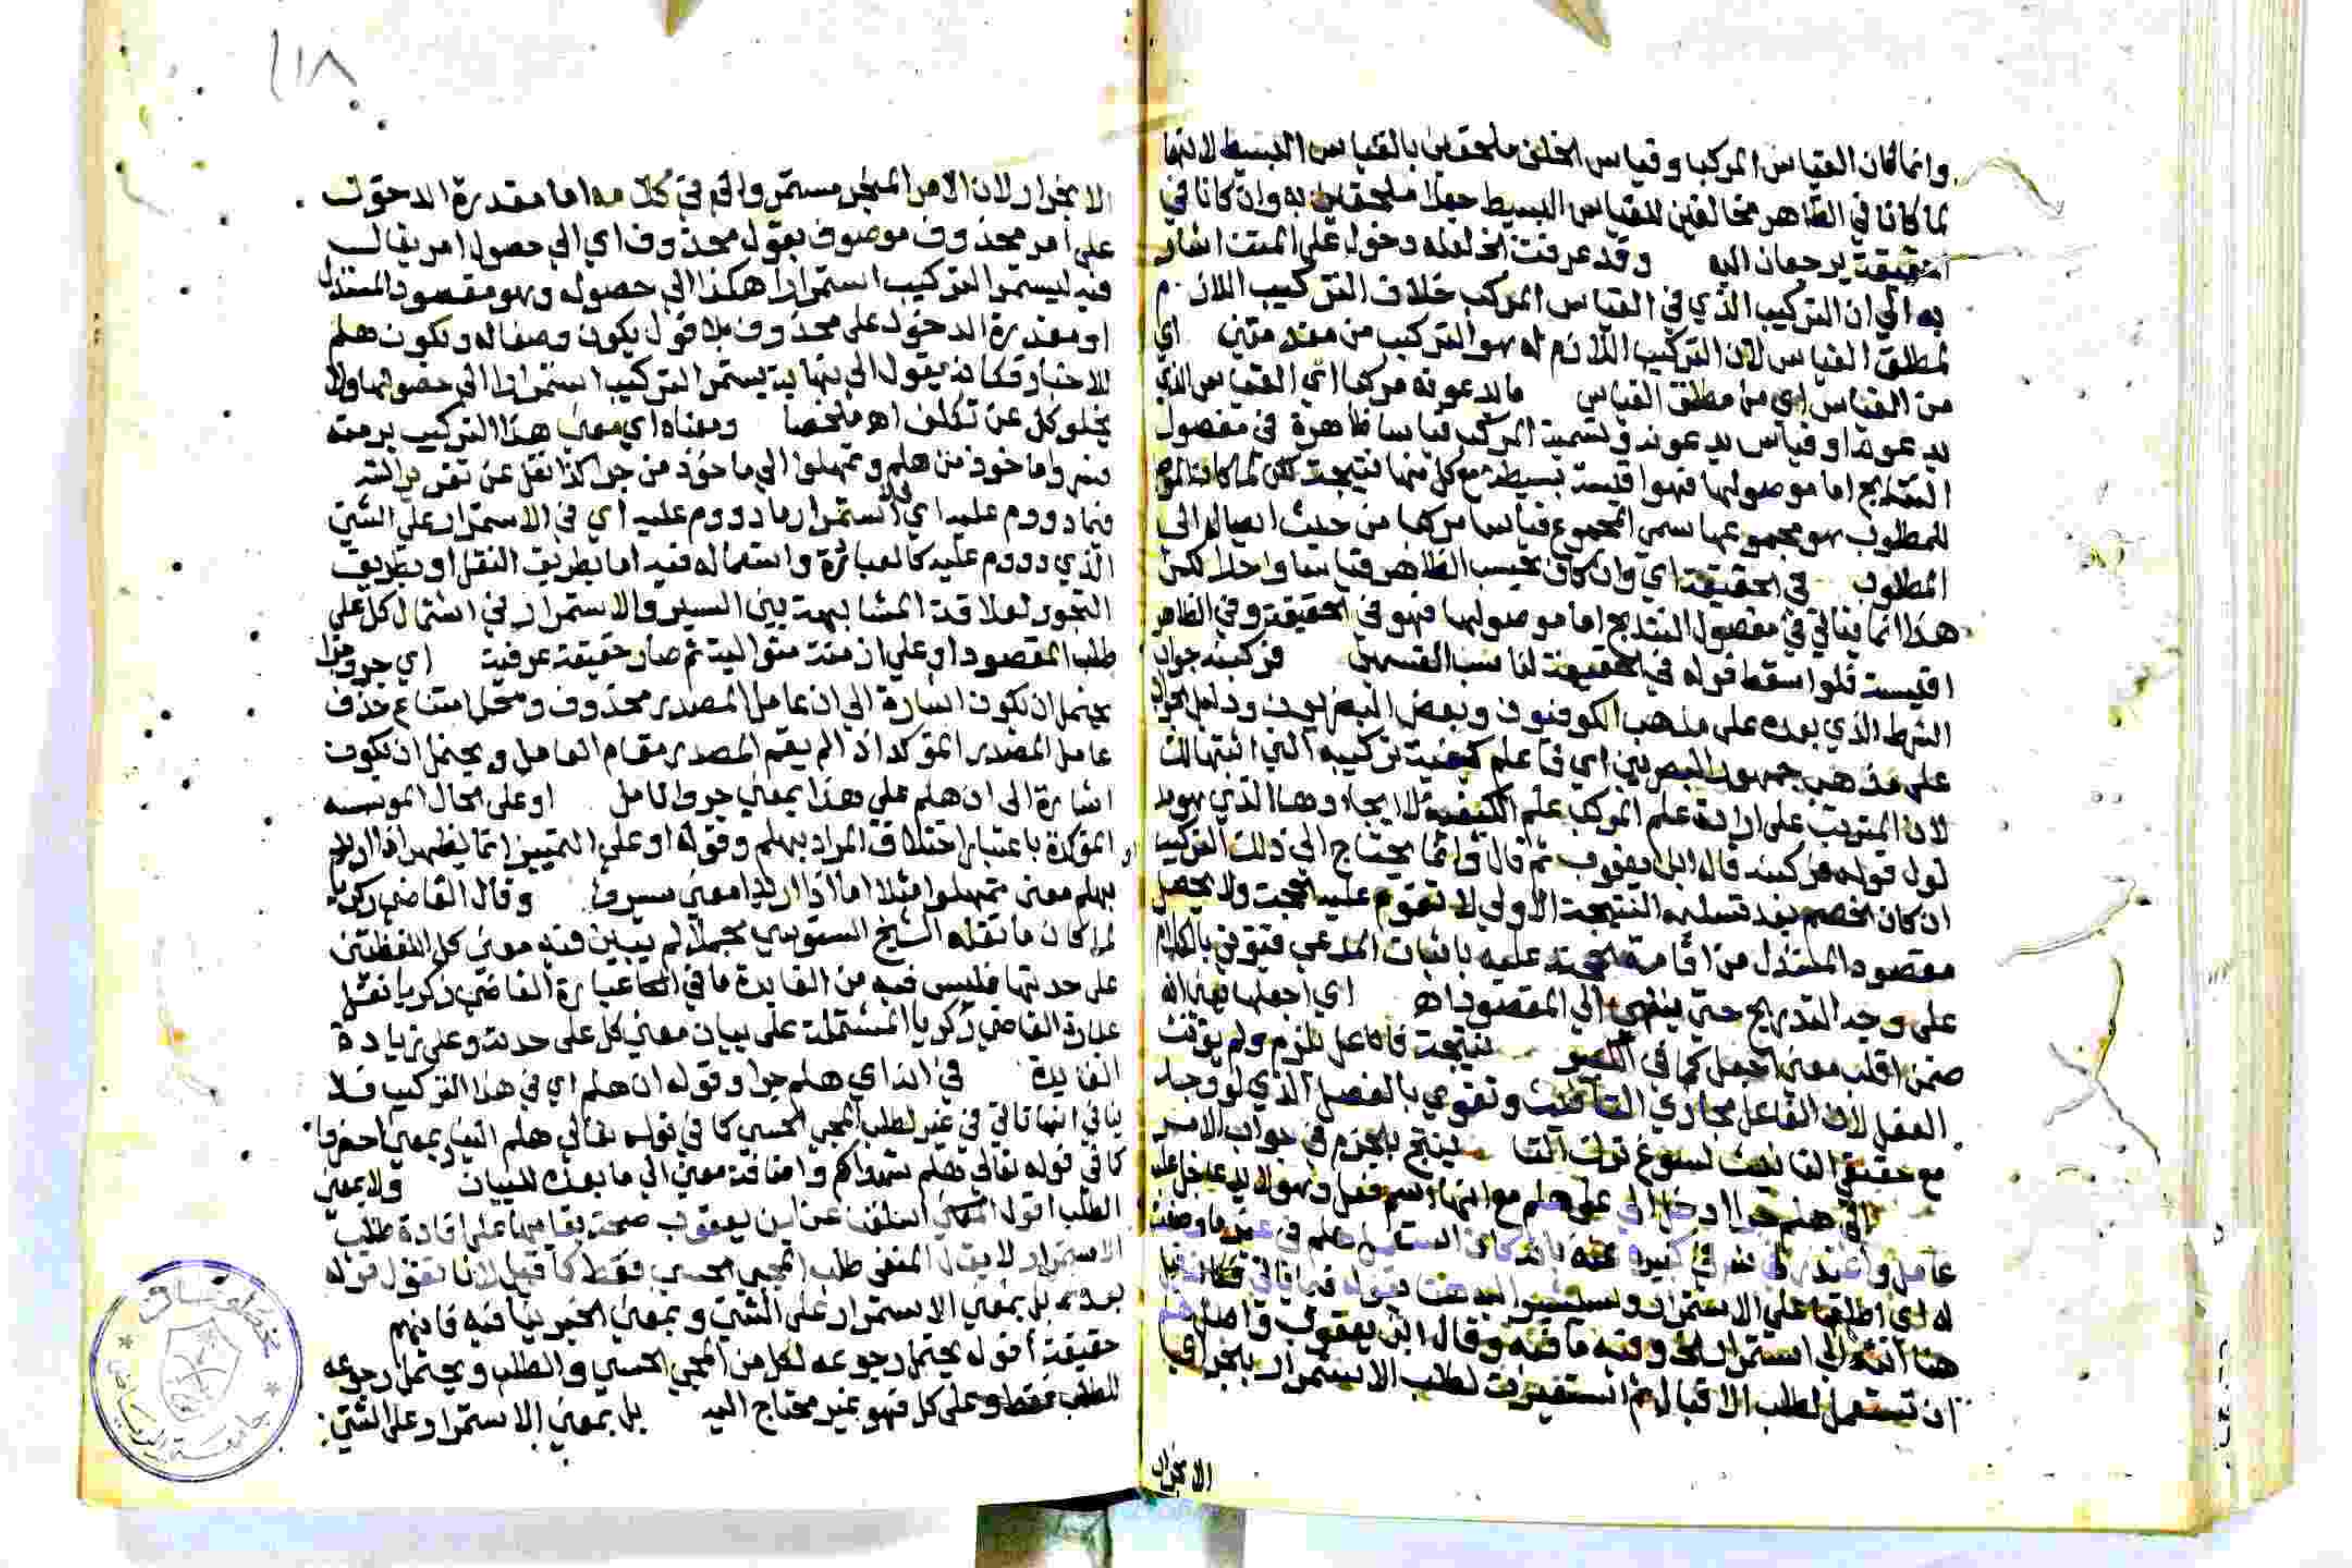 وانما كان القياس المركب وقياس الخلف ملحقين بالقياس البسيط لانهما
لما كانا في الظاهر مخالفين للقياس البسيط جعلا ملحقين به وان كانا في
الحقيقة يرجعان اليه وقد عرفت الخ لعله دخول على المتن اشار
به الي ان التركيب الذي في القياس المركب خلاف التركيب اللازم
لمطلق القياس لان التركيب اللازم له هو التركيب من مقدمتين اي
من القياس اي من مطلق القياس ما يدعونه مركبا اي القياس الذي
يدعونه او قياس يدعونه وتسمية المركب قياسا ظاهرة في مفصول
النتايج اما موصولها فهو اقيسة بسيطة مع كل منها نتيجة لكن لما كان
للمطلوب هو مجموعها سمي المجموع قياسا مركبا من حيث ايصاله الى
المطلوب في الحقيقة اي وان كان بحسب الظاهر قياسا واحدا لكن
هذا انما يتاتي في مفصول النتايج اما موصولها فهو في الحقيقة وفي الظاهر
اقيسة فلو اسقط قوله في الحقيقة لناسب القسمين فركبنه جواب
الشرط الذي بعده على مذهب الكوفيون وبعض البصريون ودليل الجواب
على مذهب جمهور البصريين اي فاعلم كيفية تركيبه التي
لان المترتب على ارادة علم المركب علم الكيفية لا ايجادها الذي هو
لول قوله فركبنه قاله ابن يعقوب ثم قال وانما يحتاج الي ذلك التركيب
ان كان الخصم بعد تسليمه النتيجة الاولي لا تقوم عليه الحجة ولا يحصل
مقصود المستدل من اقامة الحجة عليه باثبات المدعي فيؤتي بالكلام
على وجه التدريج حتي ينتهي الي المقصود اه اي اجعلها
ضمن اقلب معني اجعل كما في نتيجة فاعل يلزم ولم يؤنث
الفعل لان الفاعل مجازي التانيث وتقوي بالفصل الذي لو وجد
مع حقيقي التانيث لسوغ ترك التا ينتج بالجزم في جواب الامر
الي هلم جرا ادخل الي علي هلم مع انها اسم فعل وهو لا يدخل عليه
عامل واعتذر
له اي اطلقها على الاستمرار
هنا انته الي استمرار الخ وفيه ما فيه وقال ابن يعقوب واصل هلم
ان تستعمل لطلب الاقبال ثم استعيرت لطلب الاستمرار بالجر اي
الانجرار
٢١٨
الانجرار لان الامر المنجر مستمر والي في كلامه اما مقدرة الدخول
على امر محذوف موصوف بقول محذوف اي الي حصول امر يقال
فيه ليستمر التركيب استمرارا هكذا الي حصوله وهو مقصود المستدل
او مقدرة الدخول على محذوف بلا قول يكون وصفا له وتكون هلم
للاخبار فكانه يقول الي نهاية يستمر التركيب استمرارا الي حصولها ولا
يخلو كل عن تكلف اه ملخصا ومعناه اي معني هذا التركيب برمته
ماخوذ من هلم وتمهلوا الي ما خوذ من جرا كذا نقل عن تقرير
فيما دووم عليه اي الاستمرار ما دووم عليه اي في الاستمرار على الشيئ
الذي دووم عليه كالعبارة واستعماله فيه اما بطريق النقل او بطريق
التجوز لعلاقة المشابهة بين السير والاستمرار في اشتمال كل على
طلب المقصود او علي ان ثم صار حقيقة عرفية اي جروا جرا
يحتمل ان يكون اشارة الي ان عامل المصدر محذوف ومحل امتناع حذف
عامل المصدر المؤكد اذا لم يقم المصدر مقام العامل ويحتمل ان يكون
اشارة الى ان هلم على هذا بمعني جروا تامل او على الحال المؤسسة
او المؤكدة باعتبار اختلاف المراد بهلم وقوله او على التمييز انما يظهر اذا اريد
بهلم معنى تمهلوا مثلا اما اذا اريد بها معني سيروا وقال القاضي زكريا
لما كان ما نقله الشيخ السنوسي مجملا لم يتبين فيه معنى كل اللفظتين
على حدتها فليس فيه من الفايدة ما في عبارة القاضي زكريا نقل
عبارة القاضي زكريا المشتملة على بيان معني كل على حدته وعلى زيادة
الفايدة في الذ اي هلم جرا وقوله ان هلم اي في هذا التركيب فلا
ينافي انها تاتي في غير لطلب المجي الحسي كما في قوله تعالى هلم الينا وبمعنى احضروا
كما في قوله تعالى هلم شهداكم واضافة معني الي ما بعده للبيان ولا بمعني
الطلب اقول عن ابن يعقوب صحة بقائها على افادة طلب
الاستمرار لا يقال المنفي طلب المجي الحسي فقط كما قيل لانا نقول قوله
بعده بل بمعني الاستمرار على الشيئ وبمعني الخبر ينافيه فافهم
حقيقة اقول يحتمل رجوعه لكل من المجي الحسي والطلب ويحتمل رجوعه
للطلب فقط وعلى كل فهو غير محتاج اليه بل بمعني الاستمرار على الشيئ
مخطوطات
جامعة الرياض